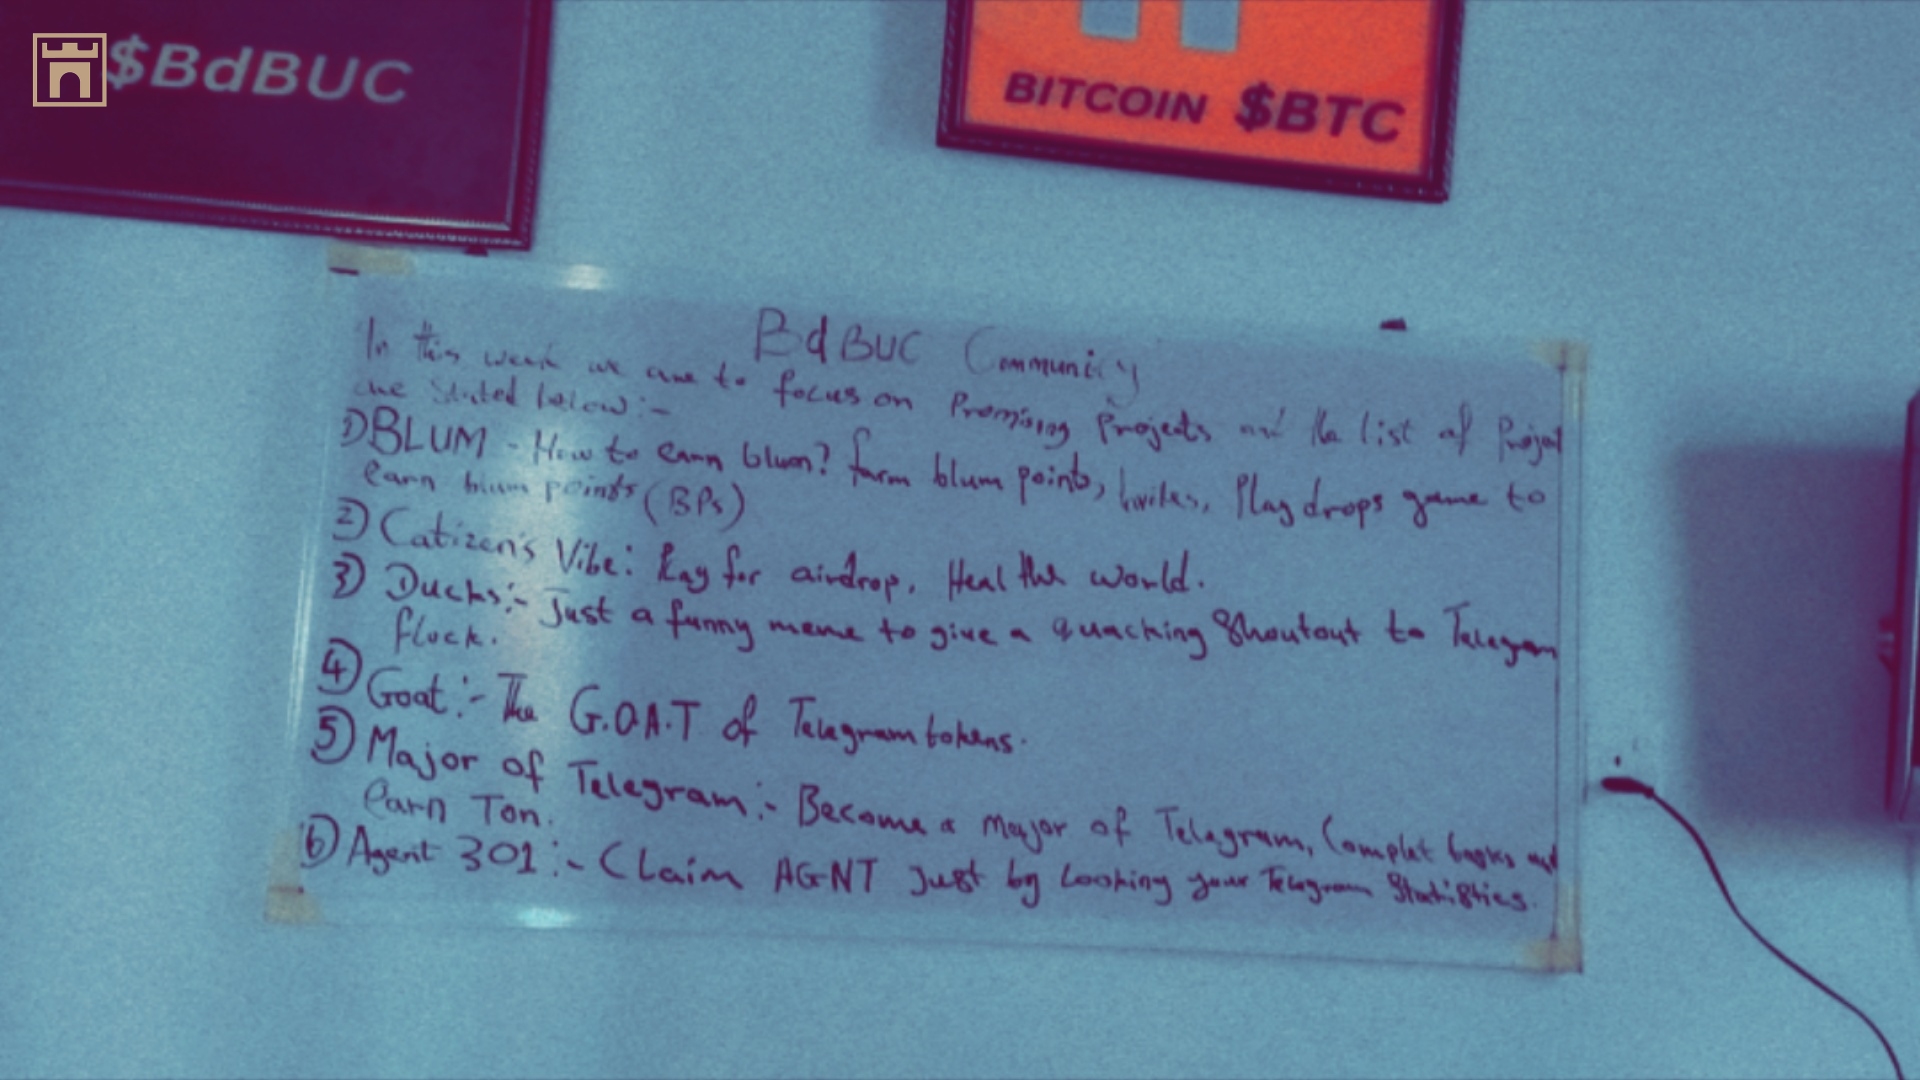 $BdBUC
BITCOIN $BTC
BdBUC Community
In this week we are to focus on Promising Projects and the list of Projet
are stated below:-
1) BLUM - How to earn blum? farm blum points, Invites, Play drops game to
earn blum points (BPs)
2) Catizen's Vibe: Play for airdrop. Heal the world.
3) Ducks:- Just a funny meme to give a quacking Shoutout to Telegram
flock.
4) Goat:- The G.O.A.T of Telegram tokens.
5) Major of Telegram:- Become a Major of Telegram, Complet tasks and
earn Ton.
6) Agent 301:- Claim AGNT Just by Looking your Telegram Statistics.